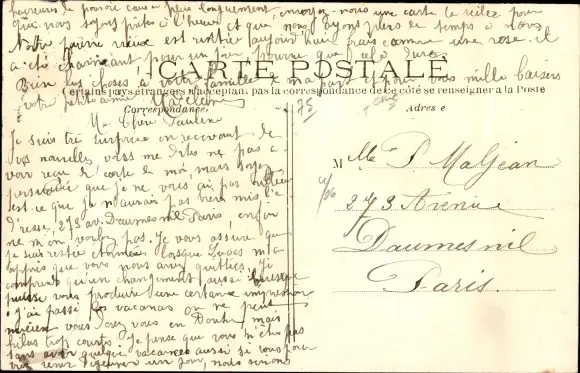 heureuses de pouvoir causer plus longuement, envoyez-nous une carte la veille pour
que nous soyons prêtes à l'heure et que nous ayons plus de temps à nous
Notre pauvre vieux est rentré aujourd'hui frais comme une rose. il
a été charmant, pour un jour pourvu que cela dure.
Bien des choses à votre famille, et pour vous mille baisers
votre petite amie
CARTE POSTALE
Certains pays étrangers n'acceptant pas la correspondance de ce côté se renseigner à la Poste
Correspondance
Adresse
Ma Chère Pauline
Je suis très surprise en recevant de
vos nouvelles, vous me dites ne pas
avoir reçu de carte de moi, mais soyez
persuadée que je ne vous ai pas
est-ce que je n'aurais pas bien mis l'a
dresse, 273 av. Daumesnil Paris, enfin
ne m'en voulez pas. Je vous assure que
je suis restée étonnée lorsque m'a
appris que vous nous aviez quittés. Je
comprends qu'un changement aussi
puisse vous produire une certaine impression
J'ai passé les vacances on ne peut
mieux vous avez vous en mais
hélas trop courtes. Je pense que vous n'êtes pas
sans avoir quelque vacances aussi si vous pour
venir un jour, nous serions
75
Mlle P Maljean
273 Avenue
Daumesnil
Paris.